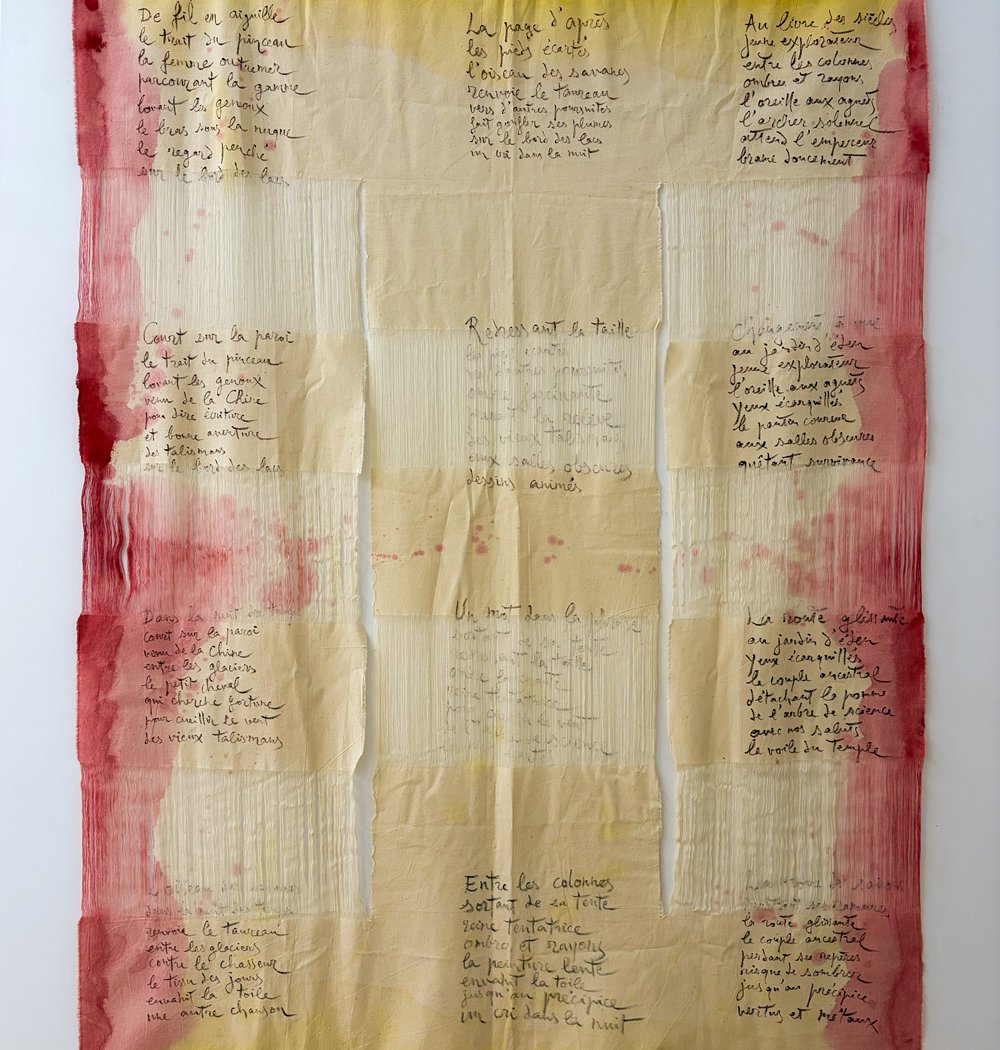 De fil en aiguille
le trait du pinceau
la femme outremer
parcourant la gamme
lovant les genoux
le bras sous la nuque
le regard penché
sur le bord des lacs
La page d'après
les pieds écartés
l'oiseau des savanes
renvoie le taureau
vers d'autres poursuites
fait gonfler ses plumes
sur le bord des lacs
un cri dans la nuit
Au livre des siècles
jeune explorateur
entre les colonnes
ombres et rayons
l'oreille aux aguets
l'archer solennel
attend l'empereur
brame doucement
Court sur la paroi
le trait du pinceau
lovant les genoux
venu de la Chine
pour dire écriture
et bonne aventure
des talismans
sur le bord des lacs
Redressant la taille
les pieds écartés
vers d'autres poursuites
la relève
des vieux talismans
aux salles obscures
dessins animés
Changement à vue
au jardin d'éden
jeune explorateur
l'oreille aux aguets
yeux écarquillés
le pantin coureur
aux salles obscures
quêtant survivance
Dans la nuit des
court sur la paroi
venu de la Chine
entre les glaciers
le petit cheval
qui cherche fortune
pour cueillir le vent
des vieux talismans
Un mot dans la
sortant de sa tente
redressant la taille
reine tentatrice
pour cueillir le vent
de l'arbre de science
La route glissante
au jardin d'éden
yeux écarquillés
le couple ancestral
détachant la pomme
de l'arbre de science
avec nos saluts
le voile du temple
L'oiseau des savanes
dans la nuit des
renvoie le taureau
entre les glaciers
contre le chasseur
le tissu des jours
envahit la toile
une autre chanson
Entre les colonnes
sortant de sa tente
reine tentatrice
ombre et rayons
la peinture lente
envahit la toile
jusqu'au précipice
un cri dans la nuit
ses ramures
la route glissante
le couple ancestral
perdant ses repères
risque de sombrer
jusqu'au précipice
vertus et métaux